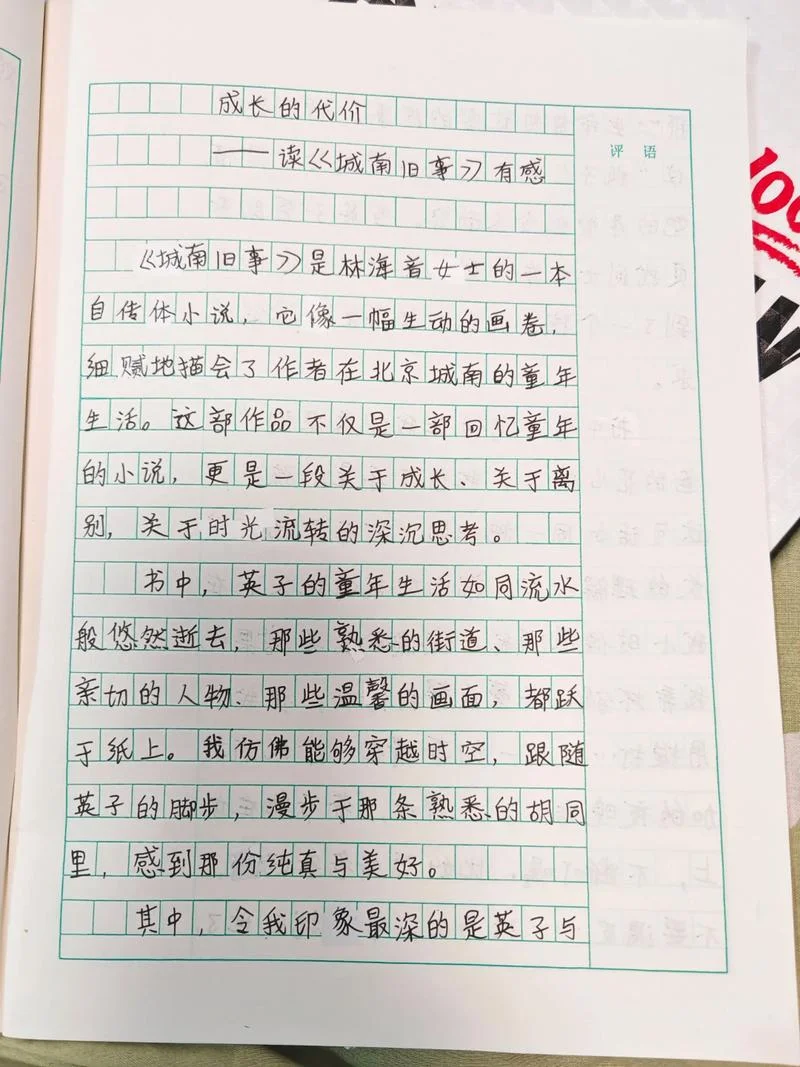 成长的代价
——读《城南旧事》有感
评语
《城南旧事》是林海音女士的一本
自传体小说，它像一幅生动的画卷，
细腻地描会了作者在北京城南的童年
生活。这部作品不仅是一部回忆童年
的小说，更是一段关于成长、关于离
别，关于时光流转的深沉思考。
书中，英子的童年生活如同流水
般悠然逝去，那些熟悉的街道、那些
亲切的人物、那些温馨的画面，都跃
于纸上。我仿佛能够穿越时空，跟随
英子的脚步，漫步于那条熟悉的胡同
里，感到那份纯真与美好。
其中，令我印象最深的是英子与
100